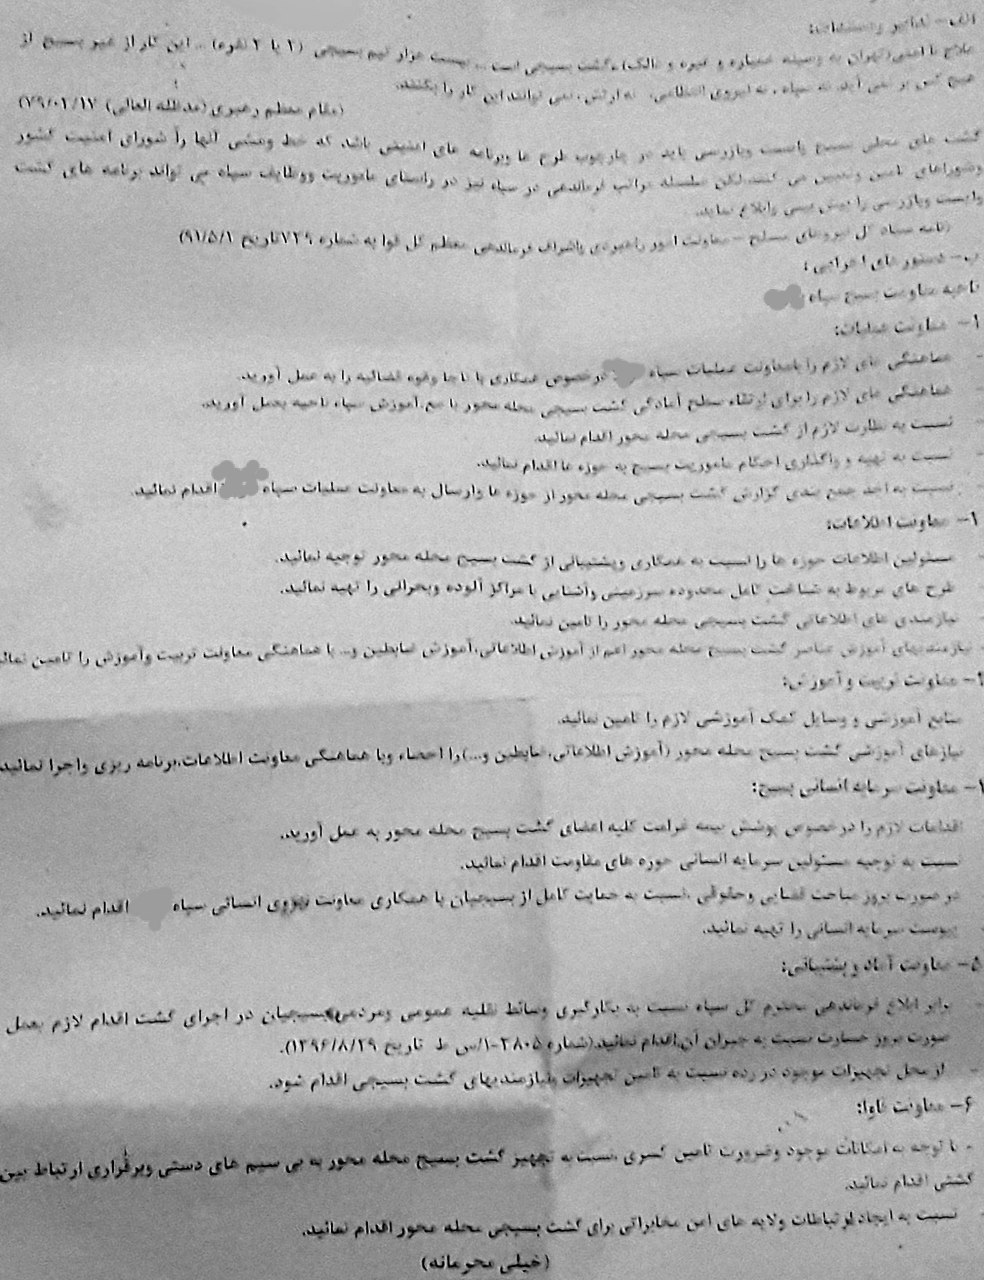 الف- تدابیر و مستندات:
علاج نا امنی (تهران به وسیله خمپاره و غیره و ذالک)، گشت بسیجی است ... بیست هزار تیم بسیجی (۲ یا ۳ نفره) .. این کار از غیر بسیج از
هیچ کس بر نمی آید. نه سپاه ، نه نیروی انتظامی، نه ارتش، نمی توانند این کار را بکنند.
(مقام معظم رهبری (مدظله العالی) ۷۹/۰۲/۱۷)
گشت های محلی بسیج وایست وبازرسی باید در چارچوب طرح ها وبرنامه های امنیتی باشد که خط ومشی آنها را شورای امنیت کشور
وشوراهای تامین وتعیین می کنند.لکن سلسله مراتب فرماندهی در سپاه نیز در راستای ماموریت ووظایف سپاه می تواند برنامه های گشت
وایست وبازرسی را پیش بینی وابلاغ نماید.
(نامه ستاد کل نیروهای مسلح – معاونت امور راهبردی واشراف فرماندهی معظم کل قوا به شماره ۷۳۹ تاریخ ۹۱/۵/۱)
ب- دستور های اجرایی :
ناحیه مقاومت بسیج سپاه
۱- معاونت عملیات:
هماهنگی های لازم را بامعاونت عملیات سپاه درخصوص همکاری با ناجا وقوه قضائیه را به عمل آورید.
هماهنگی های لازم را برای ارتقاء سطح آمادگی گشت بسیجی محله محور با مع.آموزش سپاه ناحیه بعمل آورید.
نسبت به نظارت لازم از گشت بسیجی محله محور اقدام نمائید.
نسبت به تهیه و واگذاری احکام ماموریت بسیج به حوزه ها اقدام نمائید.
نسبت به اخذ جمع بندی گزارش گشت بسیجی محله محور از حوزه ها وارسال به معاونت عملیات سپاه اقدام نمائید.
- معاونت اطلاعات:
مسئولین اطلاعات حوزه ها را نسبت به همکاری وپشتیبانی از گشت بسیج محله محور توجیه نمائید.
طرح های مربوط به شناخت کامل محدوده سرزمینی وآشنایی با مراکز آلوده وبحرانی را تهیه نمائید.
نیازمندی های اطلاعاتی گشت بسیجی محله محور را تامین نمائید.
نیازمندیهای آموزش عناصر گشت بسیج محله محور اعم از آموزش اطلاعاتی،آموزش ضابطین و... با هماهنگی معاونت تربیت وآموزش را تامین نمائ
- معاونت تربیت و آموزش:
منابع آموزشی و وسایل کمک آموزشی لازم را تامین نمائید.
نیازهای آموزشی گشت بسیج محله محور (آموزش اطلاعاتی،ضابطین و...)را احصاء وبا هماهنگی معاونت اطلاعات،برنامه ریزی واجرا نمائید
- معاونت سرمایه انسانی بسیج:
اقدامات لازم را در خصوص پوشش بیمه غرامت کلیه اعضای گشت بسیج محله محور به عمل آورید.
نسبت به توجیه مسئولین سرمایه انسانی حوزه های مقاومت اقدام نمائید.
در صورت بروز مباحث قضایی وحقوقی ،نسبت به حمایت کامل از بسیجیان با همکاری معاونت نیروی انسانی سپاه اقدام نمائید.
پیوست سرمایه انسانی را تهیه نمائید.
۵- معاونت آماد و پشتیبانی:
برابر ابلاغ فرماندهی محترم کل سپاه نسبت به بکارگیری وسائط نقلیه عمومی ومردمی بسیجیان در اجرای گشت اقدام لازم بعمل
صورت بروز خسارت نسبت به جبران آن اقدام نمائید.(شماره ۳۸۰۵-۱/س ط تاریخ ۱۳۹۶/۸/۲۹).
از محل تجهیزات موجود در رده نسبت به تامین تجهیزات ونیازمندیهای گشت بسیجی اقدام شود.
۶- معاونت فاوا:
- با توجه به امکانات موجود وضرورت تامین کسری نسبت به تجهیز گشت بسیج محله محور به بی سیم های دستی وبرقراری ارتباط بین
گشتی اقدام نمائید.
نسبت به ایجاد ارتباطات ولایه های امن مخابراتی برای گشت بسیجی محله محور اقدام نمائید.
(خیلی محرمانه)